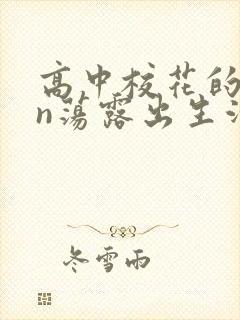 高中校花的
n荡露出生
冬雪雨